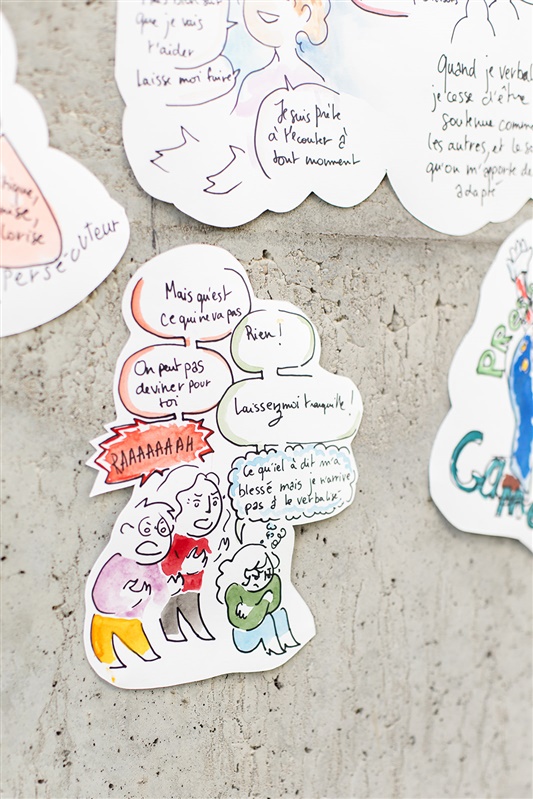 que je vais
t'aider
Laisse moi faire
Je suis prête
à t'écouter à
tout moment
Quand je verbal
je cesse d'être
soutenue comme
les autres, et le s
qu'on m'apporte
adapté
Persécuteur
Mais qu'est
ce qui ne va pas
Rien !
On peut pas
deviner pour
toi
Laissez moi tranquille !
RAAAAAAAH
Ce qu'iel à dit m'a
blessé mais je n'arrive
pas à le verbalisé